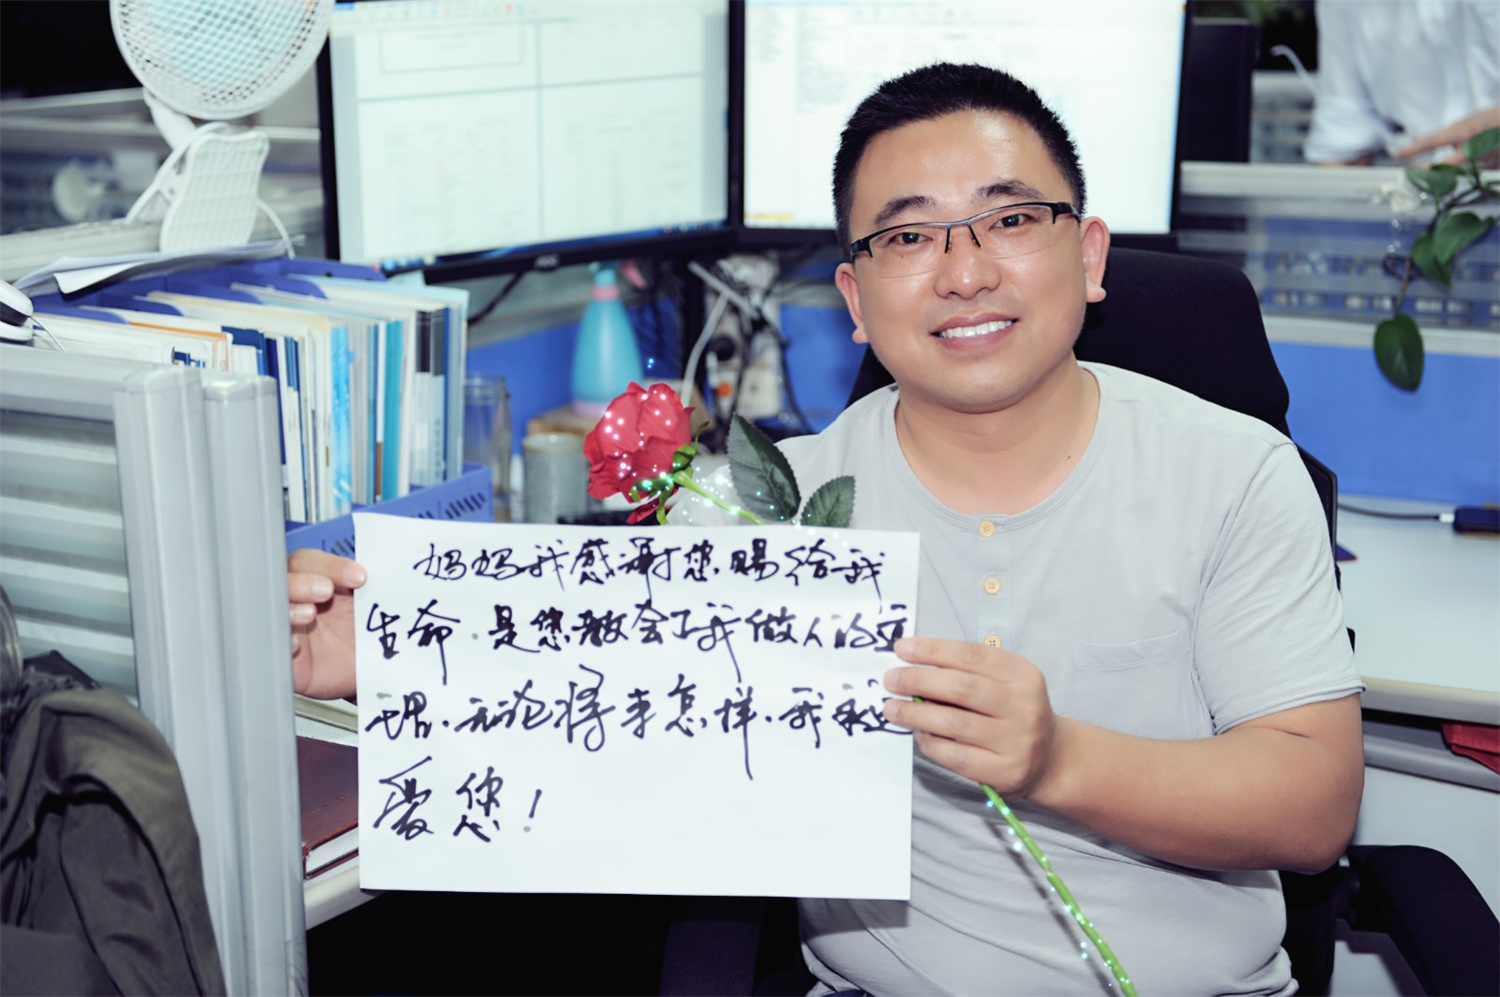 妈妈我感谢您赐给我
生命.是您教会了我做人的道
理.无论将来怎样.我永远
爱您！